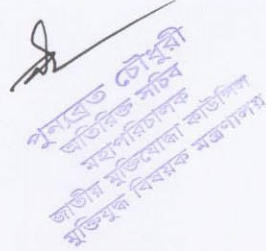 পুনরেত চৌধুরী
অতিরিক্ত সচিব
মহাপরিচালক
জাতীয় মুক্তিযোদ্ধা কাউন্সিল
মুক্তিযুদ্ধ বিষয়ক মন্ত্রণালয়